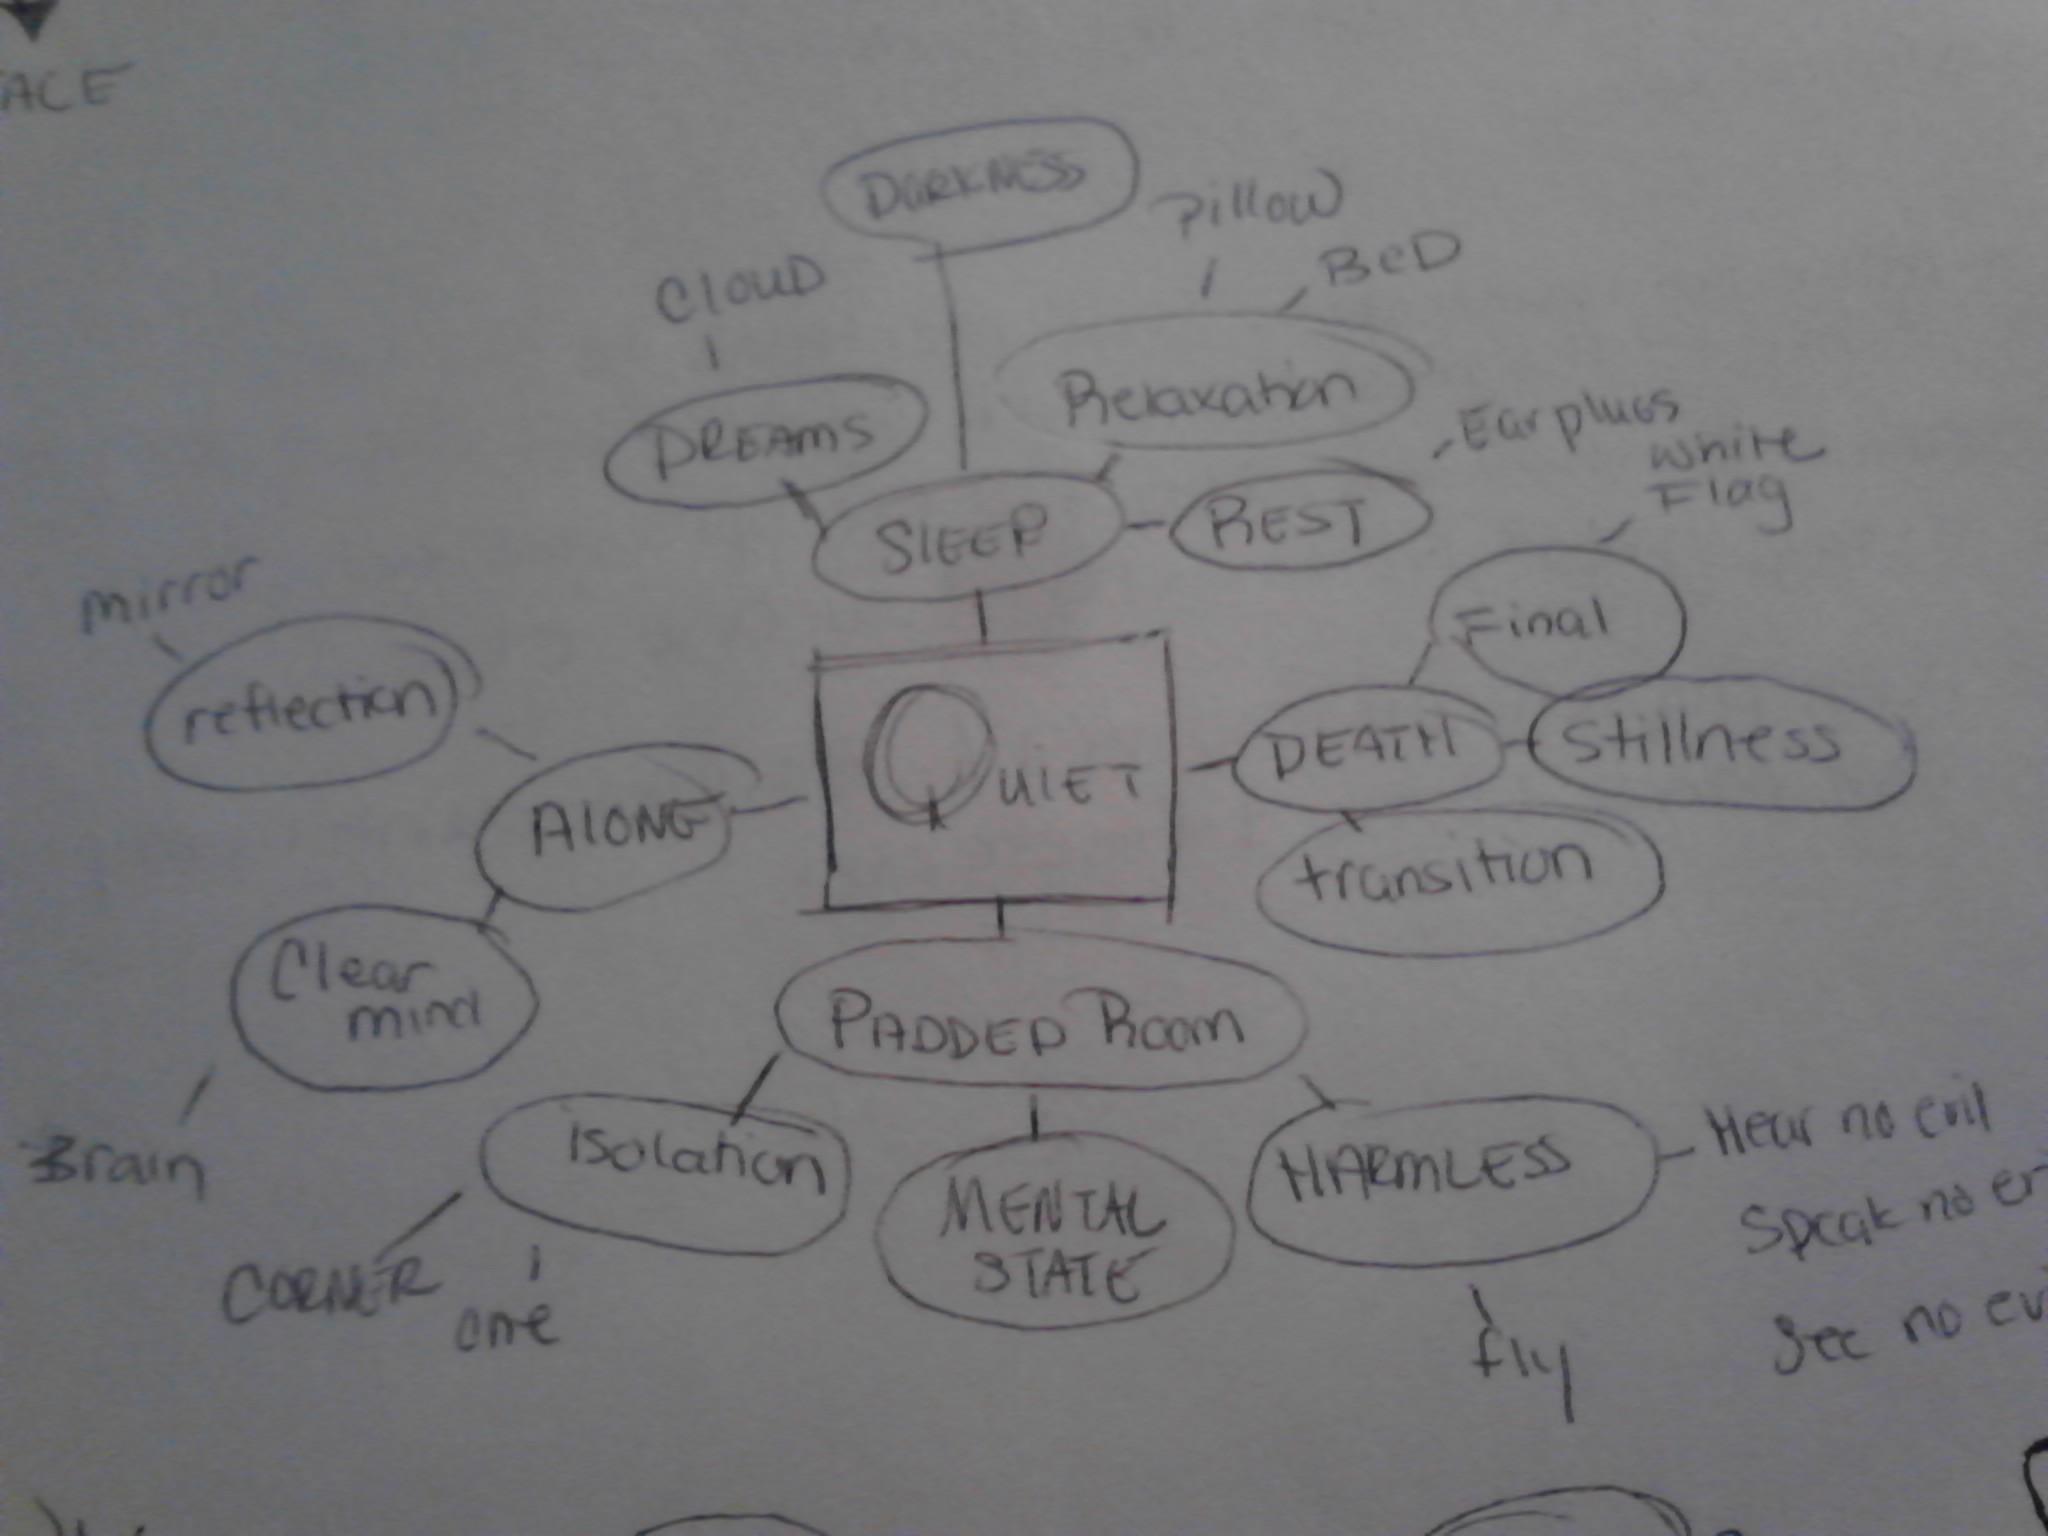 DARKNESS
Pillow
BED
Cloud
Relaxation
DREAMS
Earplugs
White
Flag
SLEEP
REST
mirror
Final
reflection
QUIET
DEATH
Stillness
ALONE
transition
Clear
mind
PADDED Room
Brain
Isolation
MENTAL
STATE
HARMLESS
Hear no evil
Speak no
See no
CORNER
one
fly